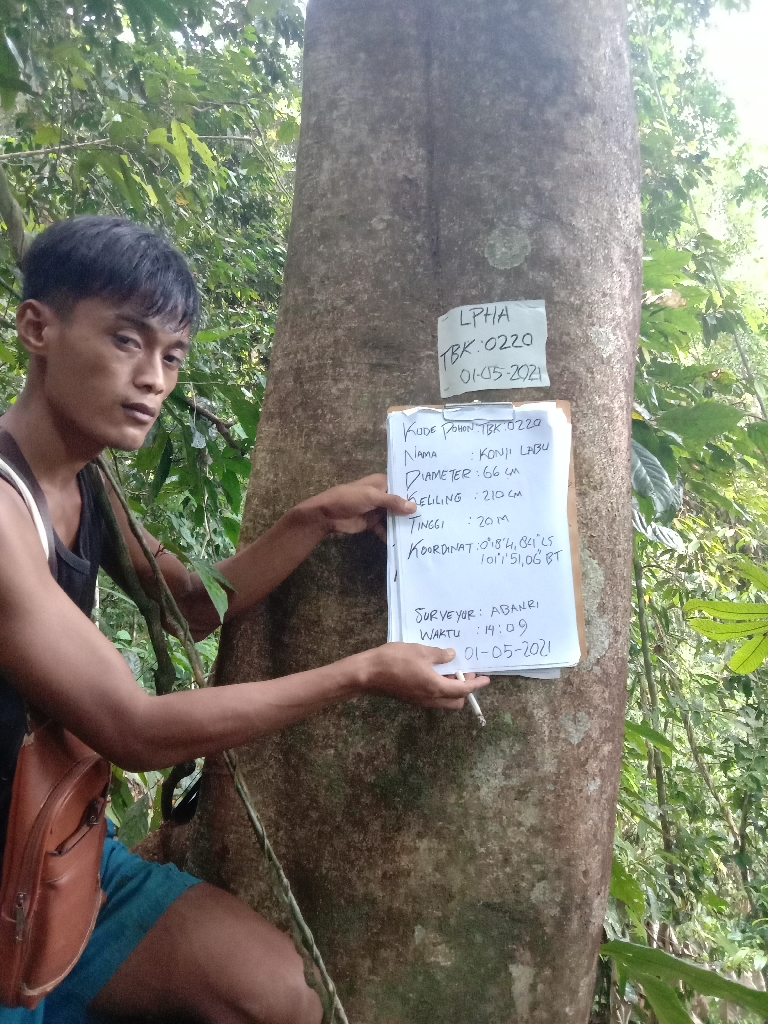 LPHA
TBK:0220
01-05-2021
KODE POHON:TBK:0220
NAMA : KONJI LABU
DIAMETER : 66 CM
KELILING : 210 CM
TINGGI : 20 M
KOORDINAT :0°8'4,841" LS
101°1'51,06" BT
SURVEYOR : ABANRI
WAKTU : 14:09
01-05-2021